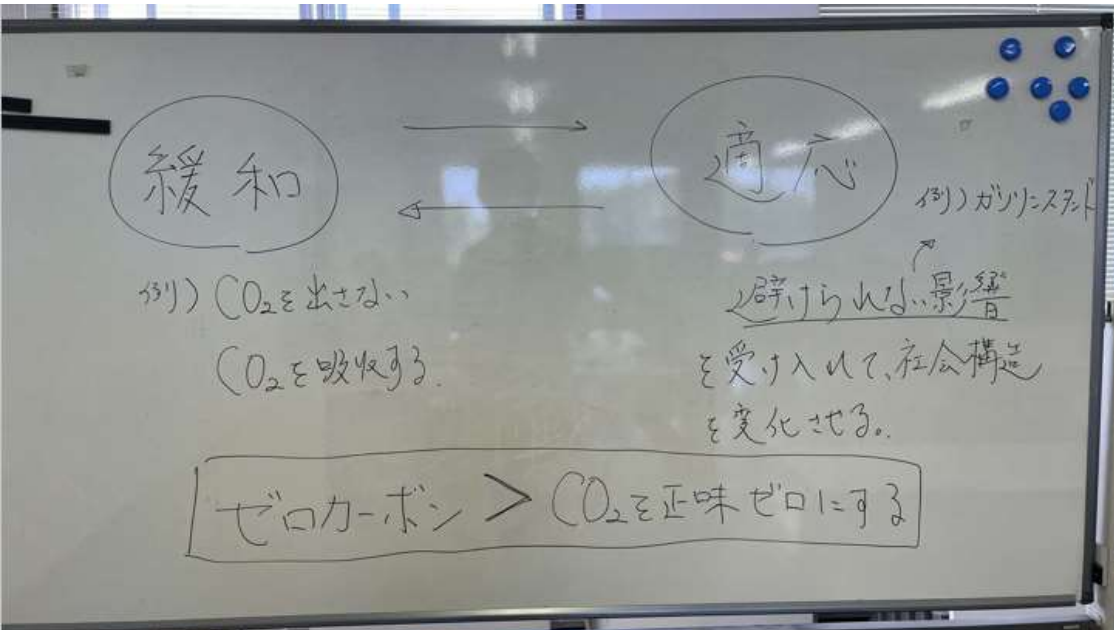 緩和
適応
例)ガソリンスタンド
例)CO₂を出さない
CO₂を吸収する.
避けられない影響
を受け入れて、社会構造
を変化させる。
ゼロカーボン > CO₂を正味ゼロにする